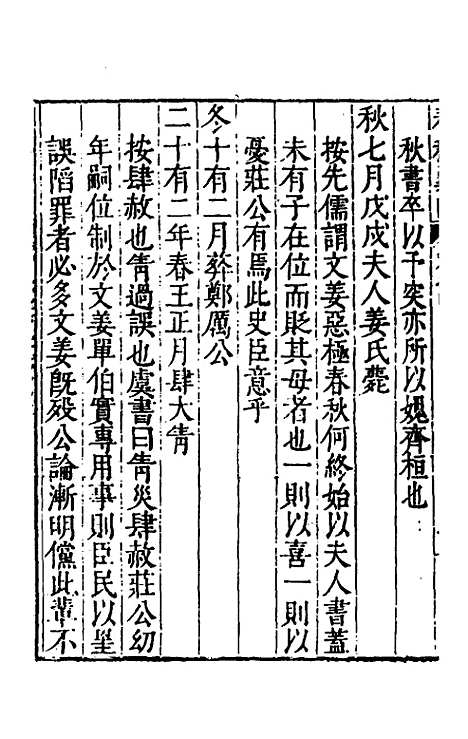 秋書卒以予突亦所以媿齊桓也
秋七月戊戌夫人姜氏薨
按先儒謂文姜惡極春秋何終始以夫人書蓋
未有子在位而貶其母者也一則以喜一則以
憂莊公有焉此史臣意乎
冬十有二月葬鄭厲公
二十有二年春王正月肆大眚
按肆赦也眚過誤也虞書曰眚災肆赦莊公幼
年嗣位制於文姜單伯實專用事則臣民以
誤陷罪者必多文姜旣歿公論漸明儻此輩不